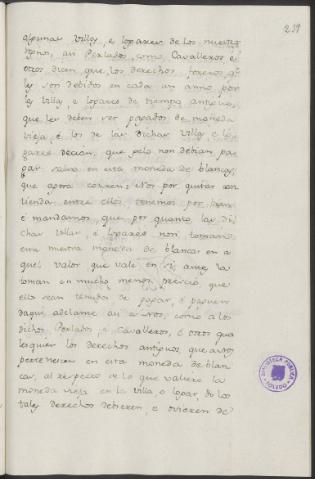 239
algunas Villas, e logares de los nuestros
regnos, asi Perlados, como Cavalleros, e
otros dicen que los derechos foreros, que
les son debidos en cada un anno por
las Villas, e logares de tiempo antiguo,
que les deben ser pagados de moneda
vieja, é los de las dichas Villas e lo-
gares decian, que gelo non debian pa-
gar, salvo en esta moneda de blancas,
que agora corren; e Nos por quitar con-
tienda entre ellos, tenemos por bien,
é mandamos, que por quanto las di-
chas Villas, é logares non tomaron
esta nuestra moneda de blancas en a-
quel valor que vale en sí, ante la
toman en mucho menos precio, que
ellos sean tenudos de pagar, é paguen
daqui adelante asi a Nos, como á los
dichos Perlados, e Cavalleros, é otros qua-
lesquier los derechos antiguos, que a Nos
pertenecen en esta moneda de blan-
cas, al respecto de lo que valiere la
moneda vieja en la villa, o logar, do los
tales derechos debieren, e ovieren de
BIBLIOTECA PÚBLICA
TOLEDO